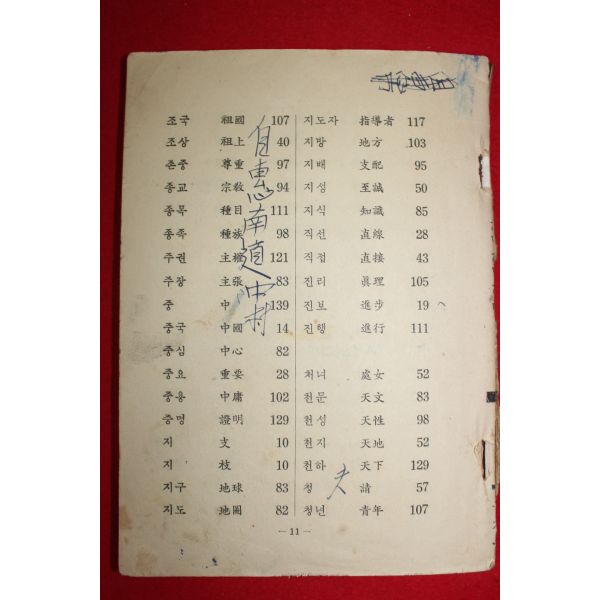 조국 祖國 107
조상 祖上 40
존중 尊重 97
종교 宗敎 94
종목 種目 111
종족 種族 98
주권 主權 121
주장 主張 83
중 中 139
중국 中國 14
중심 中心 82
중요 重要 28
중용 中庸 102
증명 證明 129
지 支 10
지 枝 10
지구 地球 83
지도 地圖 82
自惠南道中村
지도자 指導者 117
지방 地方 103
지배 支配 95
지성 至誠 50
지식 知識 85
직선 直線 28
직접 直接 43
진리 眞理 105
진보 進步 19
진행 進行 111
처녀 處女 52
천문 天文 83
천성 天性 98
천지 天地 52
천하 天下 129
청 請 57
청년 靑年 107
夫
— 11 —